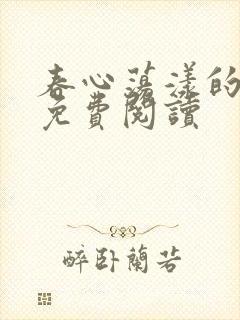 春心蕩漾的
免費閱讀
醉卧蘭若